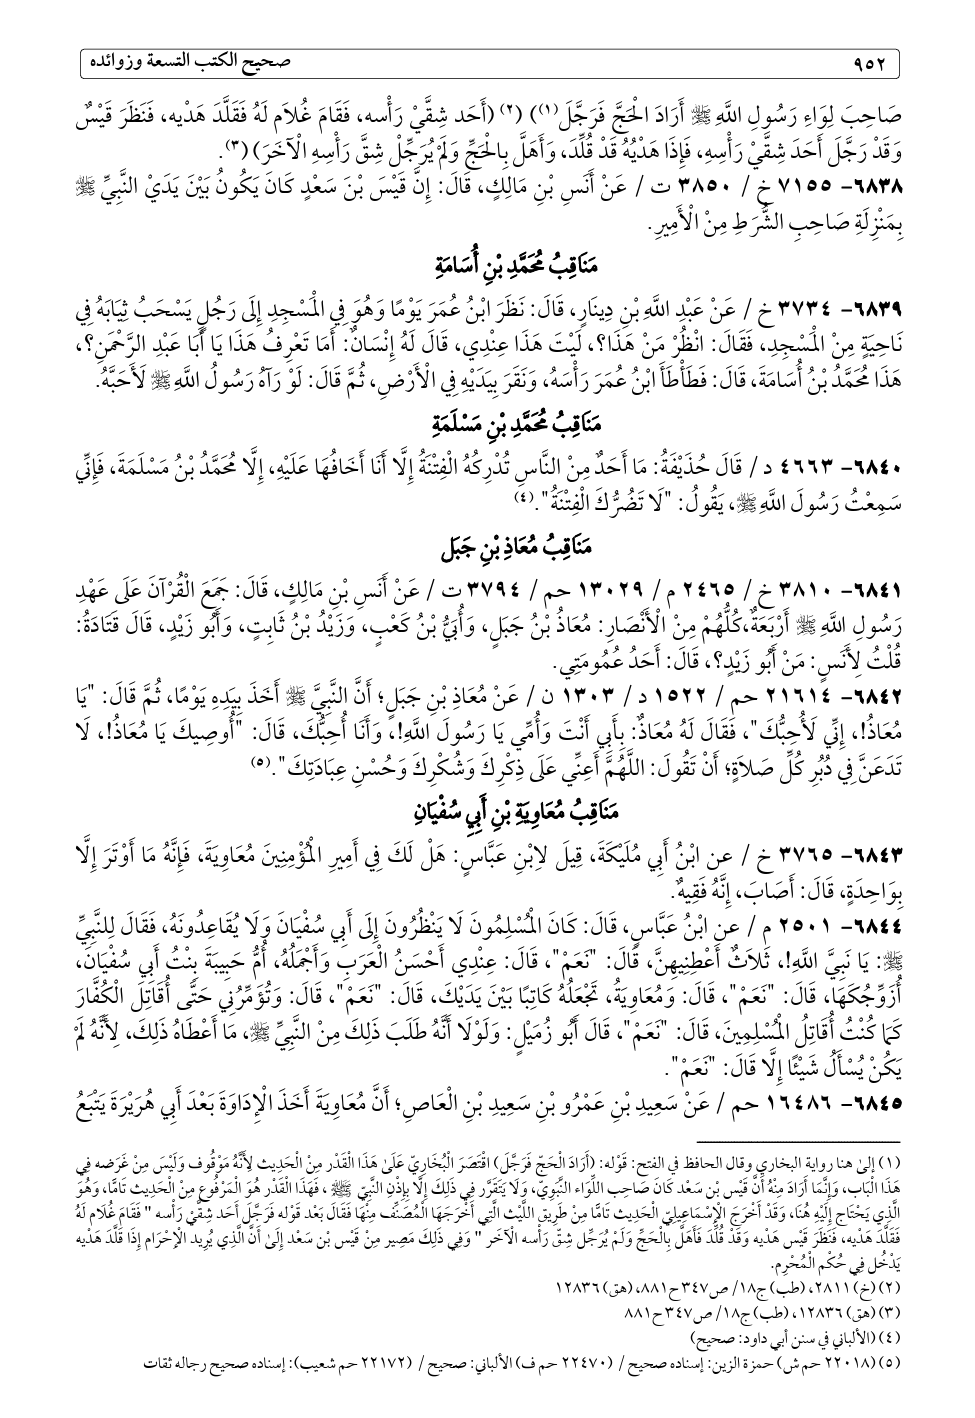 ٩٥٢ صحيح الكتب التسعة وزوائده
صَاحِبَ لِوَاءِ رَسُولِ اللَّهِ ﷺ أَرَادَ الْحَجَّ فَرَجَّلَ(١)) (٢) (أَحَد شِقَّيْ رَأْسه، فَقَامَ غُلَام لَهُ فَقَلَّدَ هَدْيه، فَنَظَرَ قَيْسٌ
وَقَدْ رَجَّلَ أَحَدَ شِقَّيْ رَأْسِهِ، فَإِذَا هَدْيُهُ قَدْ قُلِّدَ، وَأَهَلَّ بِالْحَجِّ وَلَمْ يُرَجِّلْ شِقَّ رَأْسِهِ الْآخَرَ) (٣).
٦٨٣٨- ٧١٥٥ خ / ٣٨٥٠ ت / عَنْ أَنَسِ بْنِ مَالِكٍ، قَالَ: إِنَّ قَيْسَ بْنَ سَعْدٍ كَانَ يَكُونُ بَيْنَ يَدَيْ النَّبِيِّ ﷺ
بِمَنْزِلَةِ صَاحِبِ الشُّرَطِ مِنْ الْأَمِيرِ.
مَنَاقِبُ مُحَمَّدِ بْنِ أُسَامَةِ
٦٨٣٩- ٣٧٣٤ خ / عَنْ عَبْدِ اللَّهِ بْنِ دِينَارٍ، قَالَ: نَظَرَ ابْنُ عُمَرَ يَوْمًا وَهُوَ فِي الْمَسْجِدِ إِلَى رَجُلٍ يَسْحَبُ ثِيَابَهُ فِي
نَاحِيَةٍ مِنْ الْمَسْجِدِ، فَقَالَ: انْظُرْ مَنْ هَذَا؟، لَيْتَ هَذَا عِنْدِي، قَالَ لَهُ إِنْسَانٌ: أَمَا تَعْرِفُ هَذَا يَا أَبَا عَبْدِ الرَّحْمَنِ؟،
هَذَا مُحَمَّدُ بْنُ أُسَامَةَ، قَالَ: فَطَأْطَأَ ابْنُ عُمَرَ رَأْسَهُ، وَنَقَرَ بِيَدَيْهِ فِي الْأَرْضِ، ثُمَّ قَالَ: لَوْ رَآهُ رَسُولُ اللَّهِ ﷺ لَأَحَبَّهُ.
مَنَاقِبُ مُحَمَّدِ بْنِ مَسْلَمَةِ
٦٨٤٠- ٤٦٦٣ د / قَالَ حُذَيْفَةُ: مَا أَحَدٌ مِنْ النَّاسِ تُدْرِكُهُ الْفِتْنَةُ إِلَّا أَنَا أَخَافُهَا عَلَيْهِ، إِلَّا مُحَمَّدُ بْنُ مَسْلَمَةَ، فَإِنِّي
سَمِعْتُ رَسُولَ اللَّهِ ﷺ، يَقُولُ: "لَا تَضُرُّكَ الْفِتْنَةُ".(٤)
مَنَاقِبُ مُعَاذِ بْنِ جَبَل
٦٨٤١- ٣٨١٠ خ/ ٢٤٦٥ م/ ١٣٠٢٩ حم / ٣٧٩٤ ت / عَنْ أَنَسِ بْنِ مَالِكٍ، قَالَ: جَمَعَ الْقُرْآنَ عَلَى عَهْدِ
رَسُولِ اللَّهِ ﷺ أَرْبَعَةٌ،كُلُّهُمْ مِنْ الْأَنْصَارِ: مُعَاذُ بْنُ جَبَلٍ، وَأُبَيُّ بْنُ كَعْبٍ، وَزَيْدُ بْنُ ثَابِتٍ، وَأَبُو زَيْدٍ، قَالَ قَتَادَةُ:
قُلْتُ لِأَنَسٍ: مَنْ أَبُو زَيْدٍ؟، قَالَ: أَحَدُ عُمُومَتِي.
٦٨٤٢- ٢١٦١٤ حم / ١٥٢٢ د/ ١٣٠٣ ن / عَنْ مُعَاذِ بْنِ جَبَلٍ؛ أَنَّ النَّبِيَّ ﷺ أَخَذَ بِيَدِهِ يَوْمًا، ثُمَّ قَالَ: "يَا
مُعَاذُ!، إِنِّي لَأُحِبُّكَ"، فَقَالَ لَهُ مُعَاذٌ: بِأَبِي أَنْتَ وَأُمِّي يَا رَسُولَ اللَّهِ!، وَأَنَا أُحِبُّكَ، قَالَ: "أُوصِيكَ يَا مُعَاذُ!، لَا
تَدَعَنَّ فِي دُبُرِ كُلِّ صَلَاةٍ؛ أَنْ تَقُولَ: اللَّهُمَّ أَعِنِّي عَلَى ذِكْرِكَ وَشُكْرِكَ وَحُسْنِ عِبَادَتِكَ".(٥)
مَنَاقِبُ مُعَاوِيَةِ بْنِ أَبِي سُفْيَانِ
٦٨٤٣- ٣٧٦٥ خ / عن ابْنُ أَبِي مُلَيْكَةَ، قِيلَ لِابْنِ عَبَّاسٍ: هَلْ لَكَ فِي أَمِيرِ الْمُؤْمِنِينَ مُعَاوِيَةَ، فَإِنَّهُ مَا أَوْتَرَ إِلَّا
بِوَاحِدَةٍ، قَالَ: أَصَابَ، إِنَّهُ فَقِيهٌ.
٦٨٤٤- ٢٥٠١ م / عن ابْنُ عَبَّاسٍ، قَالَ: كَانَ الْمُسْلِمُونَ لَا يَنْظُرُونَ إِلَى أَبِي سُفْيَانَ وَلَا يُقَاعِدُونَهُ، فَقَالَ لِلنَّبِيِّ
ﷺ: يَا نَبِيَّ اللَّهِ!، ثَلَاثٌ أَعْطِنِيهِنَّ، قَالَ: "نَعَمْ"، قَالَ: عِنْدِي أَحْسَنُ الْعَرَبِ وَأَجْمَلُهُ، أُمُّ حَبِيبَةَ بِنْتُ أَبِي سُفْيَانَ،
أُزَوِّجُكَهَا، قَالَ: "نَعَمْ"، قَالَ: وَمُعَاوِيَةُ، تَجْعَلُهُ كَاتِبًا بَيْنَ يَدَيْكَ، قَالَ: "نَعَمْ"، قَالَ: وَتُؤَمِّرُنِي حَتَّى أُقَاتِلَ الْكُفَّارَ
كَمَا كُنْتُ أُقَاتِلُ الْمُسْلِمِينَ، قَالَ: "نَعَمْ"، قَالَ أَبُو زُمَيْلٍ: وَلَوْلَا أَنَّهُ طَلَبَ ذَلِكَ مِنْ النَّبِيِّ ﷺ، مَا أَعْطَاهُ ذَلِكَ، لِأَنَّهُ لَمْ
يَكُنْ يُسْأَلُ شَيْئًا إِلَّا قَالَ: "نَعَمْ".
٦٨٤٥- ١٦٤٨٦ حم / عَنْ سَعِيدِ بْنِ عَمْرُو بْنِ سَعِيدِ بْنِ الْعَاصِ؛ أَنَّ مُعَاوِيَةَ أَخَذَ الْإِدَاوَةَ بَعْدَ أَبِي هُرَيْرَةَ يَتْبَعُ
(١) إلى هنا رواية البخاري وقال الحافظ في الفتح: قَوْله: (أَرَادَ الْحَجّ فَرَجَّلَ) اقْتَصَرَ الْبُخَارِيّ عَلَى هَذَا الْقَدْر مِنْ الْحَدِيث لِأَنَّهُ مَوْقُوف وَلَيْسَ مِنْ غَرَضه فِي
هَذَا الْبَاب، وَإِنَّمَا أَرَادَ مِنْهُ أَنَّ قَيْس بْن سَعْد كَانَ صَاحِب اللِّوَاء النَّبَوِيّ، وَلَا يَتَقَرَّر فِي ذَلِكَ إِلَّا بِإِذْنِ النَّبِيّ ﷺ، فَهَذَا الْقَدْر هُوَ الْمَرْفُوع مِنْ الْحَدِيث تَامًّا، وَهُوَ
الَّذِي يَحْتَاج إِلَيْهِ هُنَا، وَقَدْ أَخْرَجَ الْإِسْمَاعِيلِيّ الْحَدِيث تَامًّا مِنْ طَرِيق اللَّيْث الَّتِي أَخْرَجَهَا الْمُصَنِّف مِنْهَا فَقَالَ بَعْد قَوْله فَرَجَّلَ أَحَد شِقَّيْ رَأْسه " فَقَامَ غُلَام لَهُ
فَقَلَّدَ هَدْيه، فَنَظَرَ قَيْس هَدْيه وَقَدْ قُلِّدَ فَأَهَلَّ بِالْحَجِّ وَلَمْ يُرَجِّل شِقّ رَأْسه الْآخَر " وَفِي ذَلِكَ مَصِير مِنْ قَيْس بْن سَعْد إِلَى أَنَّ الَّذِي يُرِيد الْإِحْرَام إِذَا قَلَّدَ هَدْيه
يَدْخُل فِي حُكْم الْمُحْرِم.
(٢) (خ) ٢٨١١، (طب) ج١٨/ ص٣٤٧ح٨٨١، (هق) ١٢٨٣٦
(٣) (هق) ١٢٨٣٦، (طب) ج١٨/ ص٣٤٧ح٨٨١
(٤) (الألباني في سنن أبي داود: صحيح)
(٥) (٢٢٠١٨ حم ش) حمزة الزين: إسناده صحيح / (٢٢٤٧٠ حم ف) الألباني: صحيح / (٢٢١٧٢ حم شعيب): إسناده صحيح رجاله ثقات